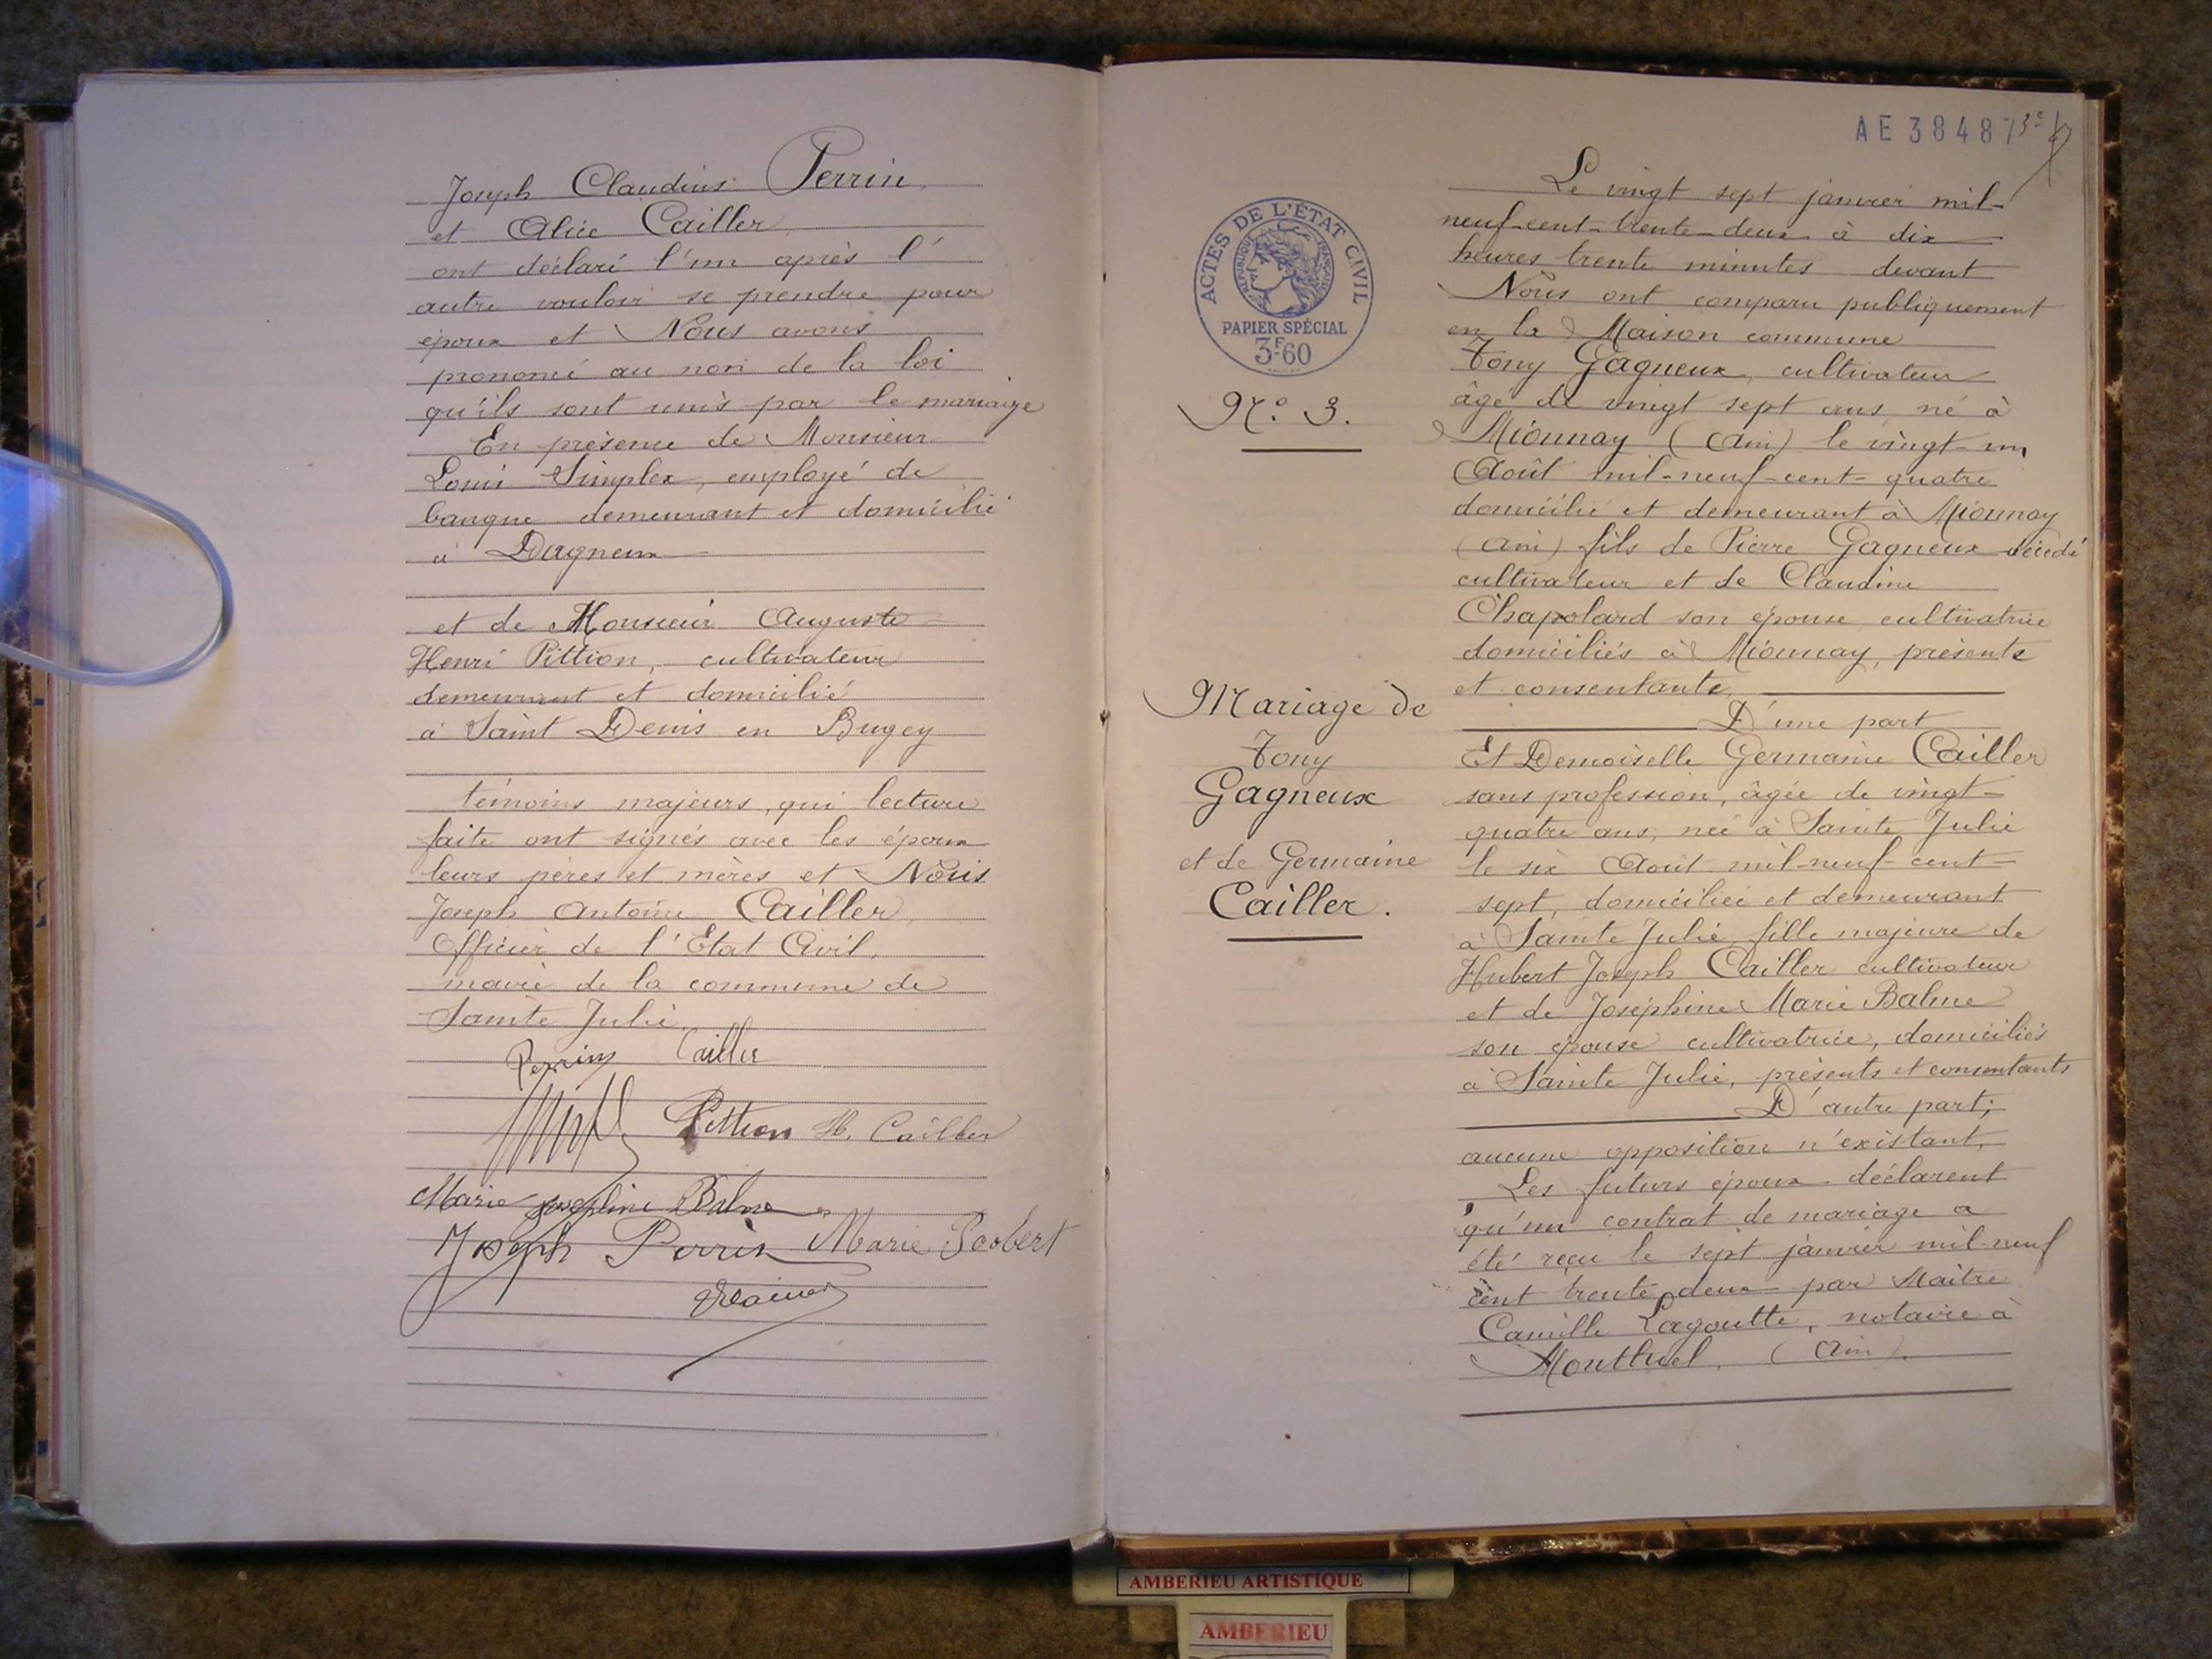 Joseph Claudius Perrin,
et Alice Cailler,
ont déclaré l'un après l'
autre vouloir se prendre pour
époux et Nous avons
prononcé au nom de la loi
qu'ils sont unis par le mariage
En présence de Monsieur
Louis Simplex, employé de
banque demeurant et domicilié
à Dagneux
et de Monsieur Auguste
Henri Pittion, cultivateur
demeurant et domicilié
à Saint Denis en Bugey
témoins majeurs, qui lecture
faite ont signés avec les époux
leurs pères et mères et Nous
Joseph Antoine Cailler,
Officier de l'Etat Civil,
maire de la commune de
Sainte Julie.
Perrin Cailler
Pittion H. Cailler
Marie Josephine Balme
Joseph Perrin Marie
AE 38487 3e
ACTES DE L'ÉTAT CIVIL
RÉPUBLIQUE FRANÇAISE
PAPIER SPÉCIAL
3F60
No. 3.
Mariage de
Tony
Gagneux
et de Germaine
Cailler.
Le vingt sept janvier mil-
neuf-cent-trente-deux à dix
heures trente minutes devant
Nous ont comparu publiquement
en la Maison commune
Tony Gagneux, cultivateur
âgé de vingt sept ans, né à
Mionnay (Ain) le vingt-un
Août mil-neuf-cent-quatre
domicilié et demeurant à Mionnay
(Ain) fils de Pierre Gagneux décédé
cultivateur et de Claudine
Chapolard son épouse, cultivatrice
domiciliés à Mionnay, présente
et consentante,
D'une part
Et Demoiselle Germaine Cailler
sans profession, âgée de vingt-
quatre ans, née à Sainte Julie
le six Août mil-neuf-cent-
sept, domiciliée et demeurant
à Sainte Julie, fille majeure de
Hubert Joseph Cailler cultivateur
et de Joséphine Marie Balme
son épouse cultivatrice, domiciliés
à Sainte Julie, présents et consentants
D'autre part;
aucune opposition n'existant,
Les futurs époux déclarent
qu'un contrat de mariage a
été reçu le sept janvier mil-neuf
cent trente deux par Maitre
Camille Lagoutte, notaire à
Montluel, (Ain).
AMBERIEU ARTISTIQUE
AMBERIEU